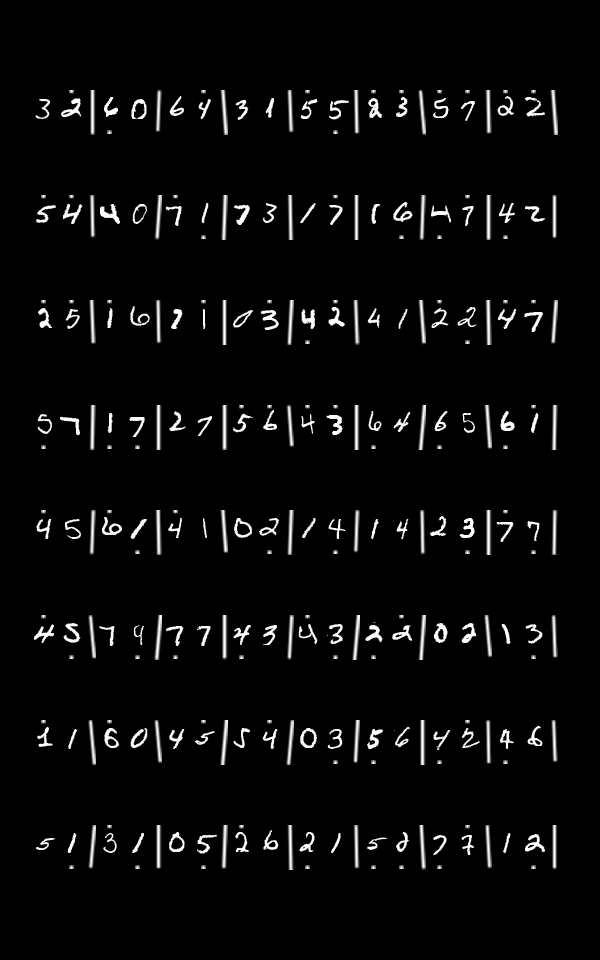 3 2 | 6 0 | 6 4 | 3 1 | 5 5 | 2 3 | 5 7 | 2 2 |
5 4 | 4 0 | 7 1 | 7 3 | 1 7 | 1 6 | 4 7 | 4 2 |
2 5 | 1 6 | 7 1 | 0 3 | 4 2 | 4 1 | 2 2 | 4 7 |
5 7 | 1 7 | 2 7 | 5 6 | 4 3 | 6 4 | 6 5 | 6 1 |
4 5 | 6 1 | 4 1 | 0 2 | 1 4 | 1 4 | 2 3 | 7 7 |
4 5 | 7 4 | 7 7 | 4 3 | 4 3 | 2 2 | 0 2 | 1 3 |
1 1 | 6 0 | 4 5 | 5 4 | 0 3 | 5 6 | 4 2 | 4 6 |
5 1 | 3 1 | 0 5 | 2 6 | 2 1 | 5 2 | 7 7 | 1 2 |